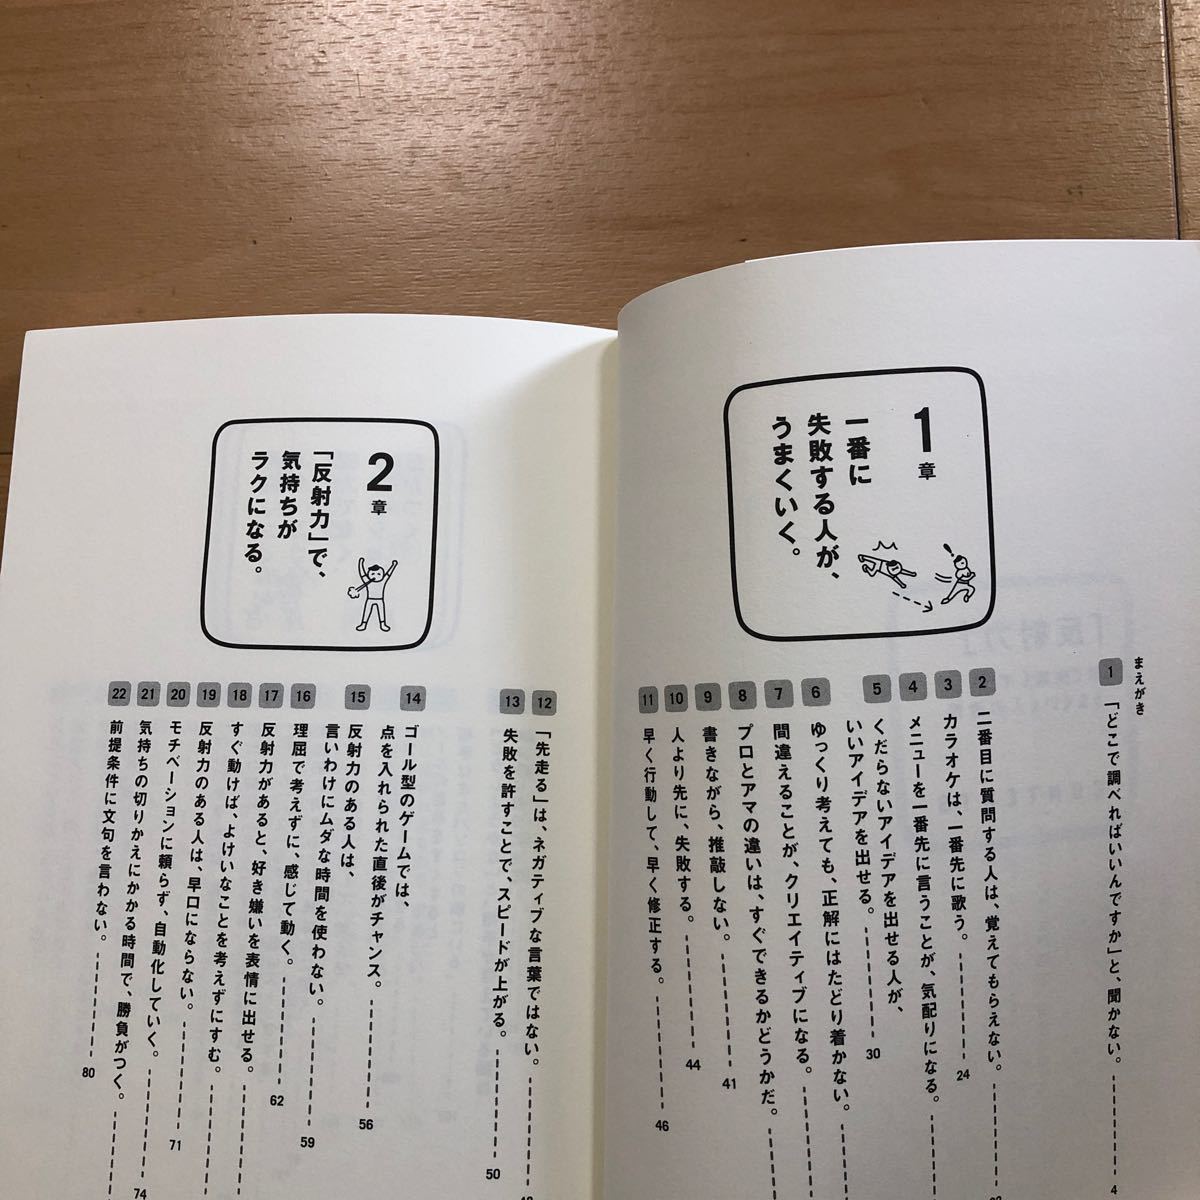 まえがき
1
「どこで調べればいいんですか」と、聞かない。
4
1章
一番に
失敗する人が、
うまくいく。
2
二番目に質問する人は、覚えてもらえない。
3
カラオケは、一番先に歌う。
24
4
メニューを一番先に言うことが、気配りになる。
5
くだらないアイデアを出せる人が、
いいアイデアを出せる。
30
6
ゆっくり考えても、正解にはたどり着かない。
7
間違えることが、クリエイティブになる。
8
プロとアマの違いは、すぐできるかどうかだ。
9
書きながら、推敲しない。
41
10
人より先に、失敗する。
44
11
早く行動して、早く修正する。
46
12
「先走る」は、ネガティブな言葉ではない。
13
失敗を許すことで、スピードが上がる。
50
2章
「反射力」で、
気持ちが
ラクになる。
14
ゴール型のゲームでは、
点を入れられた直後がチャンス。
56
15
反射力のある人は、
言いわけにムダな時間を使わない。
59
16
理屈で考えずに、感じて動く。
62
17
反射力があると、好き嫌いを表情に出せる。
18
すぐ動けば、よけいなことを考えずにすむ。
19
反射力のある人は、早口にならない。
71
20
モチベーションに頼らず、自動化していく。
74
21
気持ちの切りかえにかかる時間で、勝負がつく。
22
前提条件に文句を言わない。
80